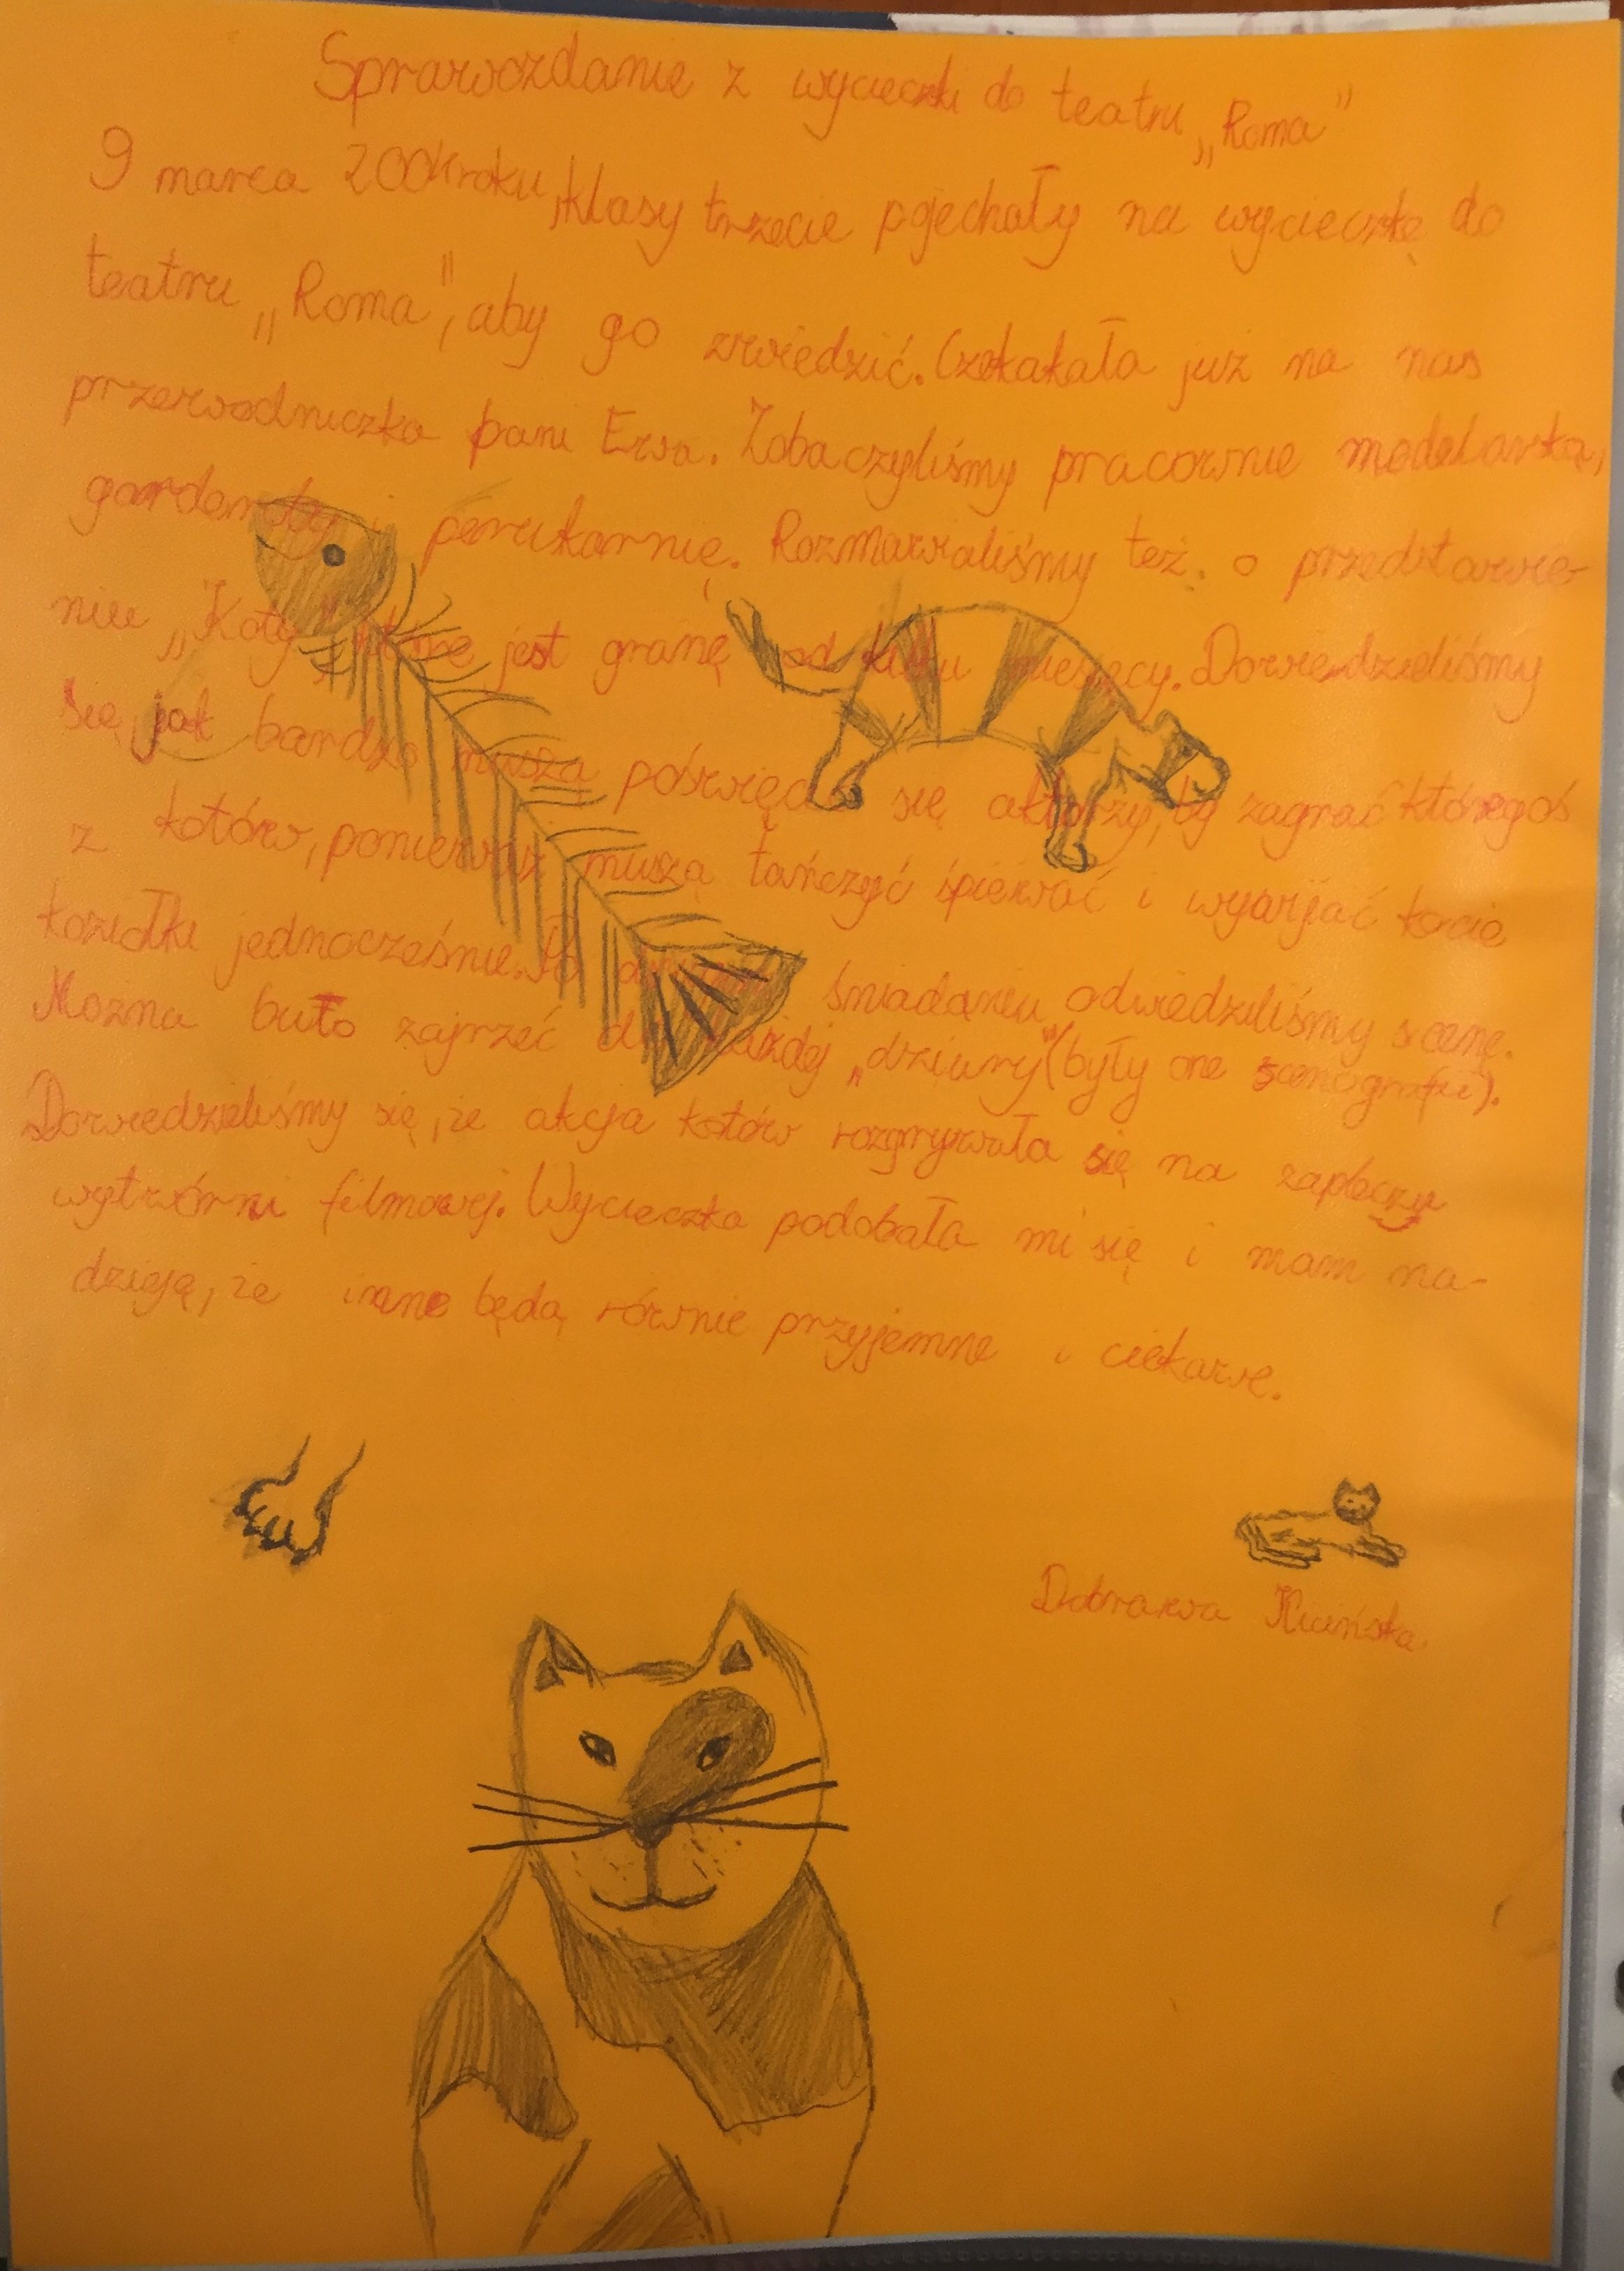 Sprawozdanie z wycieczki do teatru „Roma"
9 marca roku, klasy trzecie pojechały na wycieczkę do
teatru „Roma", aby go zwiedzić. Czekakała już na nas
przewodniczka pani Ewa. Zobaczyliśmy pracownie modelarską,
garderoby i perukarnię. Rozmawialiśmy też o przedstawie-
niu „Koty" które jest granę od kilku miesięcy. Dowiedzieliśmy
się, jak bardzo muszą poświęcać się aktorzy, by zagrać któregoś
z kotów, ponieważ muszą tańczyć śpiewać i wywijać kocie
koziołki jednocześnie. Po śniadaniu odwiedziliśmy scenę.
Można buło zajrzeć do każdej „dziury" (były one scenografii).
Dowiedzieliśmy się, że akcja kotów rozgrywała się na zapleczu
wytwórni filmowej. Wycieczka podobała mi się i mam na-
dzieję, że inne będą równie przyjemne i ciekawe.
Dobrawa Kicińska.